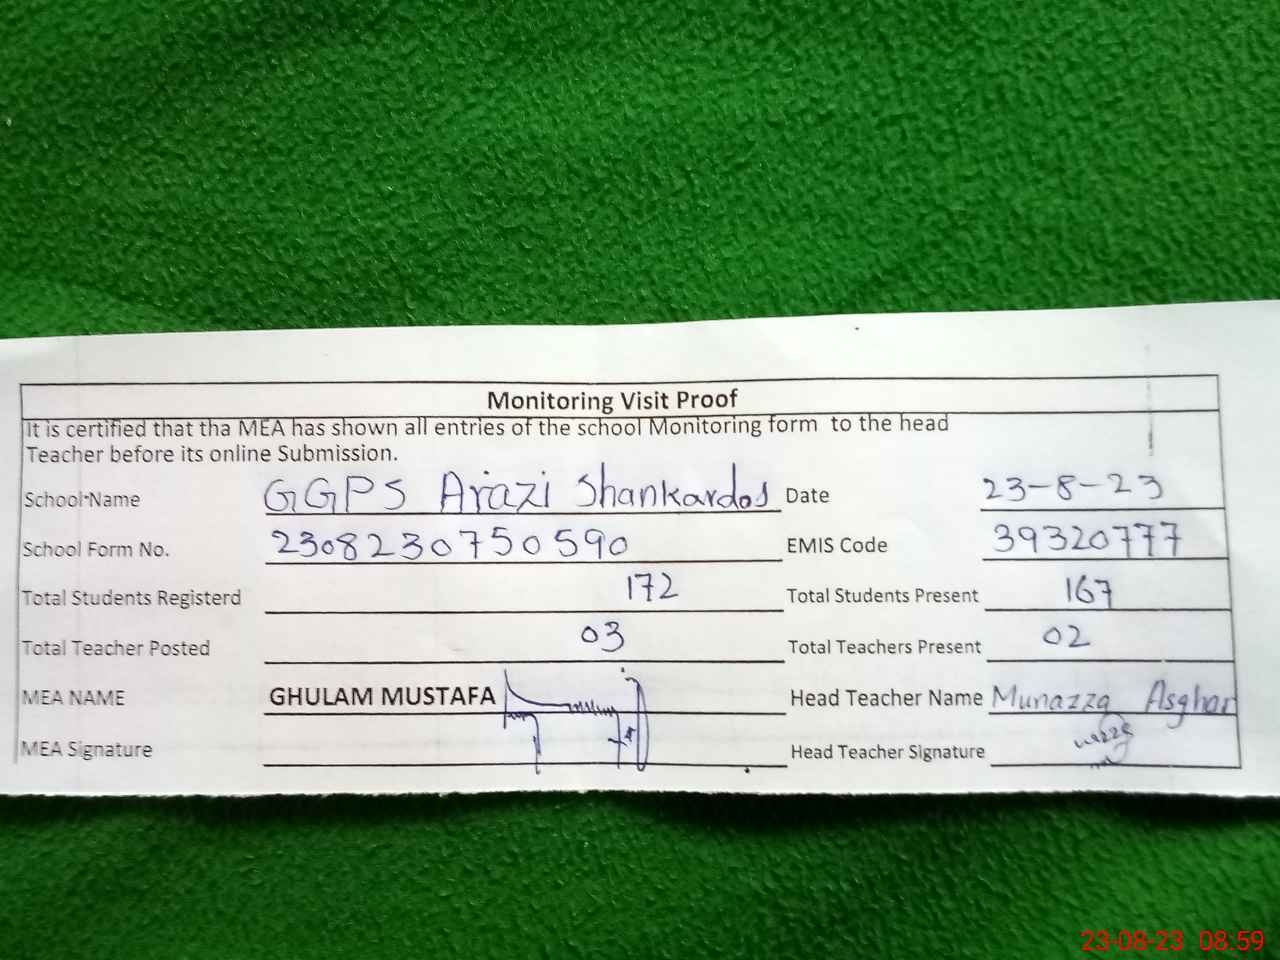 Monitoring Visit Proof
It is certified that tha MEA has shown all entries of the school Monitoring form to the head
Teacher before its online Submission.
School Name GGPS Arazi Shankardas Date 23-8-23
School Form No. 2308230750590 EMIS Code 39320777
Total Students Registerd 172 Total Students Present 167
Total Teacher Posted 03 Total Teachers Present 02
MEA NAME GHULAM MUSTAFA Head Teacher Name Munazza Asghar
MEA Signature Head Teacher Signature
23-08-23 08:59